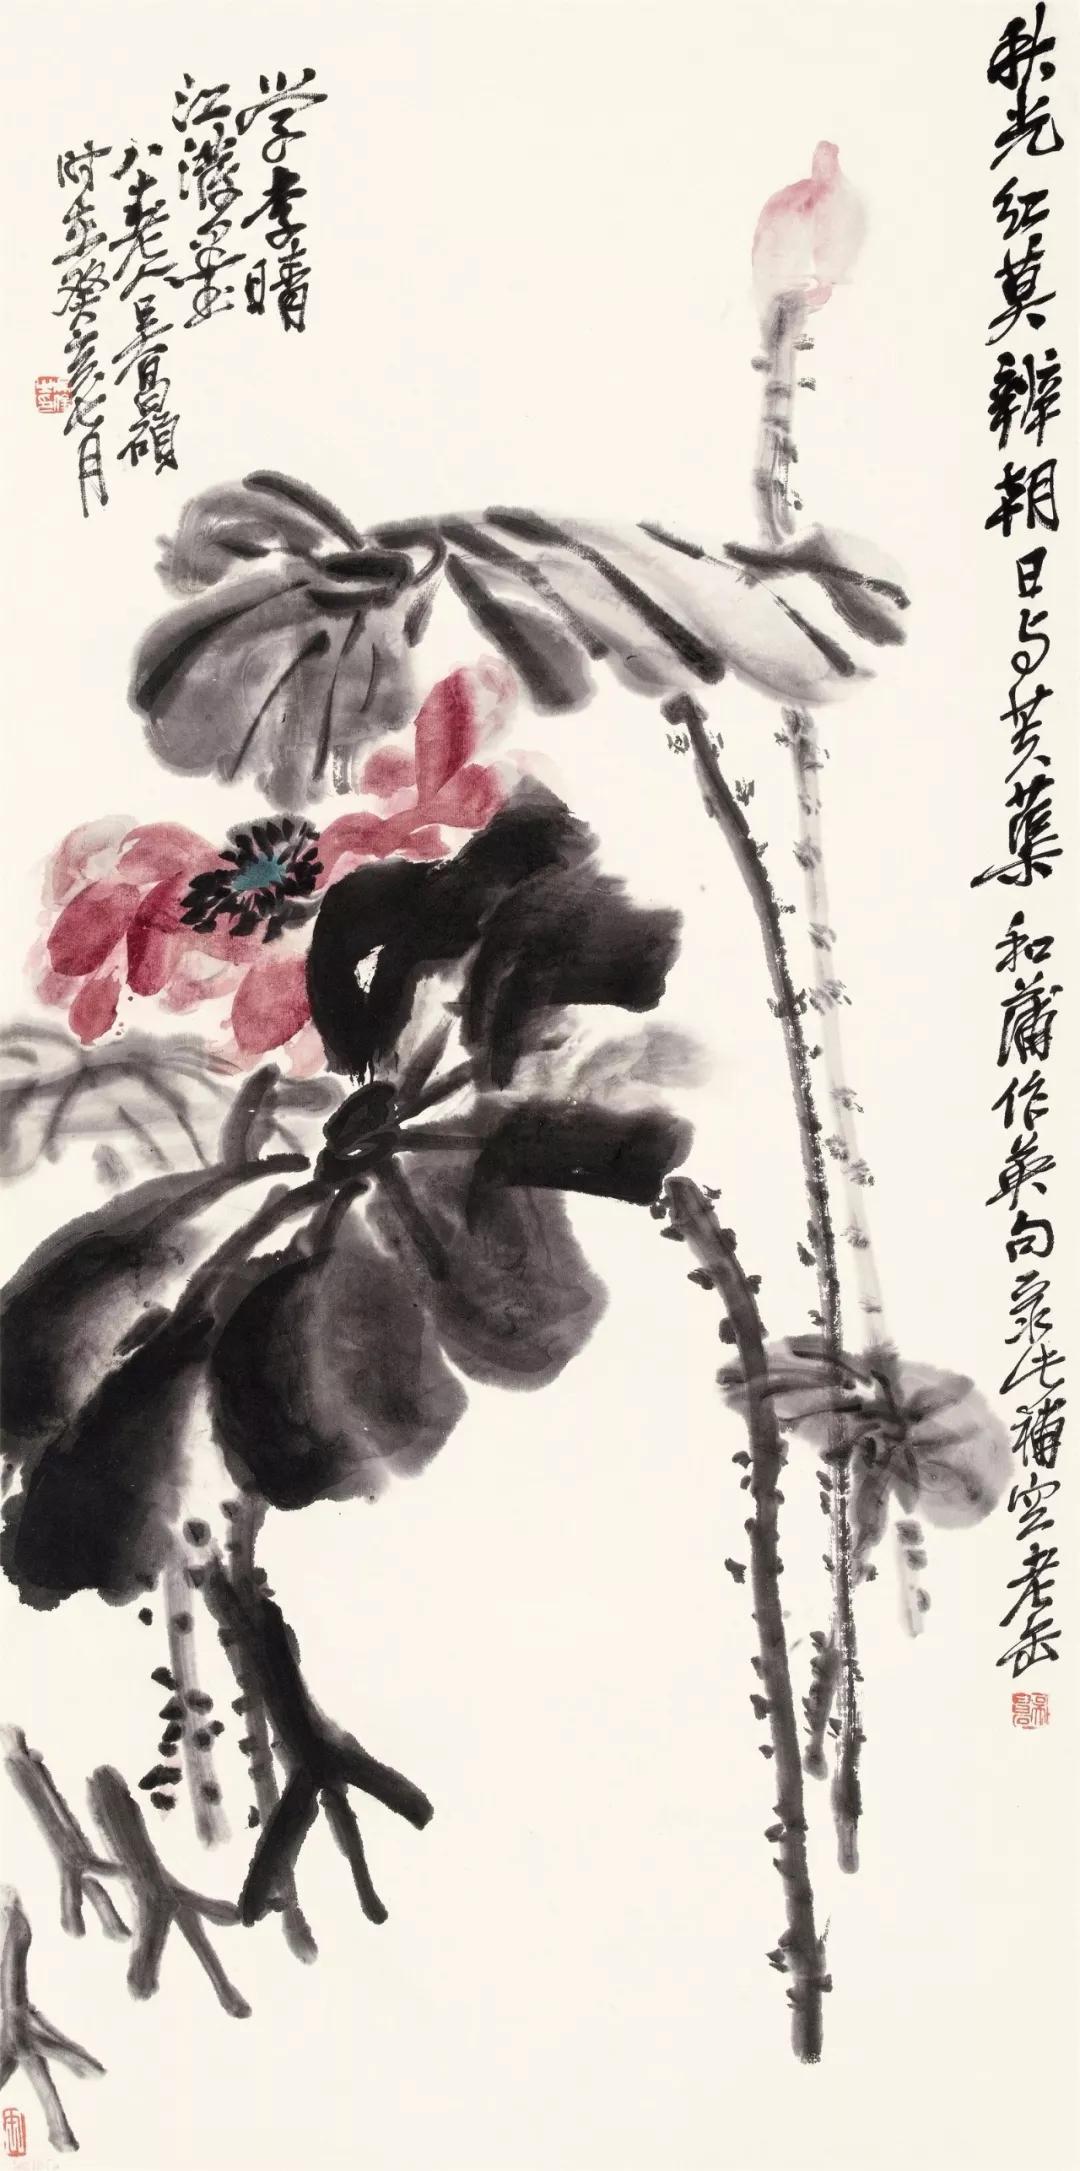 秋光红莫辨朝日与芙蕖 和蒲作英句录此補空老缶
学李晴
江潑墨
八十老人吴昌碩
时在癸亥七月